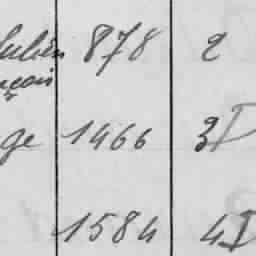 Julien 878 2
nçois
ge 1466 3D
1584 4D